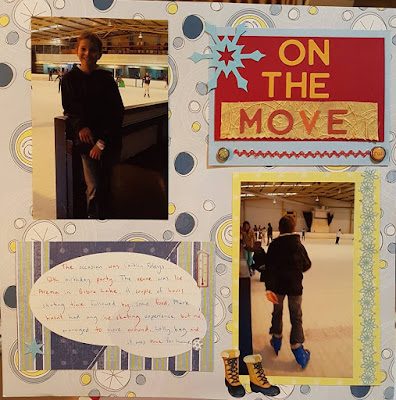 ON
THE
MOVE
The occasion was
12th birthday party. The venue was Ice
Arena in Bibra Lake. A couple of hours
skating time followed by some food. Mark
hadn't had any ice skating experience, but he
managed to move around. Lolly bag and
it was time for home